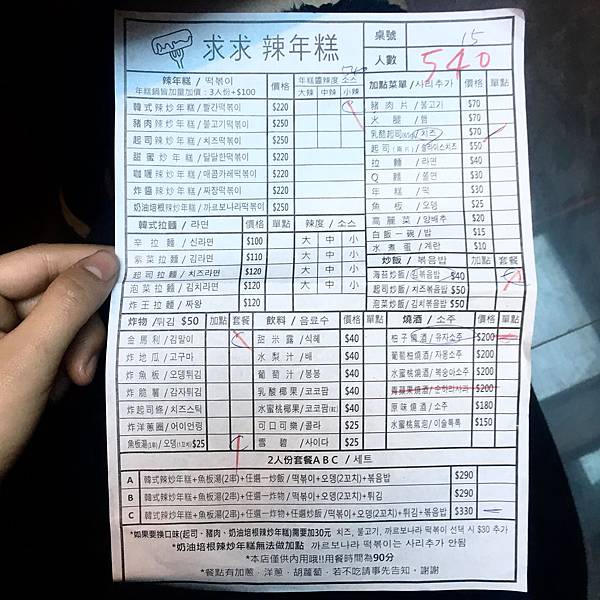 求求 辣年糕
桌號 15
人數 540
辣年糕 / 떡볶이 價格 年糕醬辣度 소스
年糕鍋皆加量加價:3人份+$100 大辣 中辣 小辣
韓式辣炒年糕/빨간떡볶이 $220
豬肉辣炒年糕/불고기떡볶이 $250
起司辣炒年糕/치즈떡볶이 $250
甜蜜炒年糕/달달한떡볶이 $220
咖喱辣炒年糕/매콤카레떡볶이 $220
炸醬辣炒年糕/짜장떡볶이 $220
奶油培根辣炒年糕/까르보나라떡볶이 $250
韓式拉麵 / 라면 價格 單點 辣度 / 소스
辛拉麵/신라면 $100 大 中 小
紫菜拉麵/김라면 $110 大 中 小
起司拉麵/치즈라면 $120 大 中 小
泡菜拉麵/김치라면 $120 大 中 小
炸王拉麵/짜왕 $120
加點菜單/사리추가 價格 單點
豬肉片/불고기 $70
火腿/햄 $70
乳酪起司/치즈 $70
起司(兩片)/슬라이스치즈 $50
拉麵/라면 $40
Q麵/쫄면 $30
年糕/떡 $30
魚板/오뎅 $25
高麗菜/양배추 $20
白飯一碗/밥 $15
水煮蛋/계란 $10
炒飯/볶음밥 加點 套餐
海苔炒飯/김볶음밥 $40
起司炒飯/치즈볶음밥 $50
泡菜炒飯/김치볶음밥 $50
炸物/튀김 $50 加點 套餐
金馬利/김말이
炸地瓜/고구마
炸魚板/오뎅튀김
炸脆薯/감자튀김
炸起司條/치즈스틱
炸洋蔥圈/어이언링
魚板湯(1串)/오뎅(1꼬치) $25
飲料/음료수 價格 單點
甜米露/식혜 $40
水梨汁/배 $40
葡萄汁/봉봉 $40
乳酸椰果/코코팜 $40
水蜜桃椰果/코코팜(紅) $40
可口可樂/콜라 $25
雪碧/사이다 $25
燒酒/소주 價格 單點
柚子燒酒/유자소주 $200
葡萄柚燒酒/자몽소주 $200
水蜜桃燒酒/복숭아소주 $200
青蘋果燒酒/순하리사과 $200
原味燒酒/소주 $180
水蜜桃氣泡/이슬톡톡 $150
2人份套餐ABC / 세트
A 韓式辣炒年糕+魚板湯(2串)+任選一炒飯/떡볶이+오뎅(2꼬치)+볶음밥 $290
B 韓式辣炒年糕+魚板湯(2串)+任選一炸物/떡볶이+오뎅(2꼬치)+튀김 $290
C 韓式辣炒年糕+魚板湯(2串)+任選一炸物+任選炒飯/떡볶이+오뎅(2꼬치)+튀김+볶음밥 $330
*如果要換口味(起司、豬肉、奶油培根辣炒年糕)需要加30元 치즈, 불고기, 까르보나라 떡볶이 선택 시 $30 추가
*奶油培根辣炒年糕無法做加點 까르보나라 떡볶이는 사리추가 안됨
*本店僅供內用哦!!用餐時間為90分
*餐點有加蔥、洋蔥、胡蘿蔔,若不吃請事先告知,謝謝